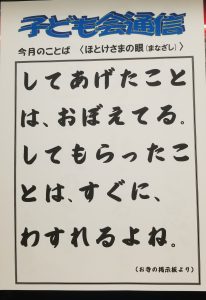 子ども会通信
今月のことば 〈ほとけさまの眼(まなざし)〉
してあげたこと
は、おぼえてる。
してもらったこ
とは、すぐに、
わすれるよね。
(お寺の掲示板より)